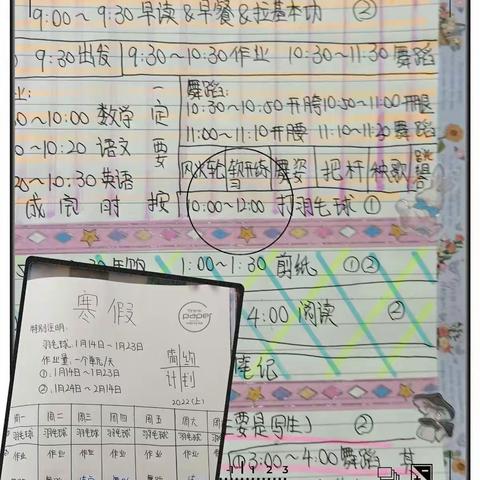 9:00～9:30 早读&早餐&拉基本功 ②
9:30出发 9:30～10:30作业 10:30～11:30 舞蹈
业: 一 舞蹈:
0～10:00 数学 定 10:30～10:50 开胯 10:50～11:00 开腿
0～10:20 语文 要 11:00～11:10 开腰 11:10～11:20 舞蹈
20～10:30 英语 风火轮 舞姿 把杆 秧歌
成 完 时 按 10:00～12:00 打羽毛球 ①
1:00～1:30 剪纸 ①②
4:00 阅读 ②
笔记
主要是写生) ②
①3:00～4:00 舞蹈 其
寒假
paper
特别说明:
羽毛球:1月14日～1月23日
作业量:一个单元/天
①:1月14日～1月23日
②:1月24日～2月14日
简约
计划
2022(上)
周一 周二 周三 周四 周五 周六 周
羽毛球 羽毛球 羽毛球 羽毛球 羽毛球 羽毛球
作业 作业 作业 作业 作业 作业
1 2 3